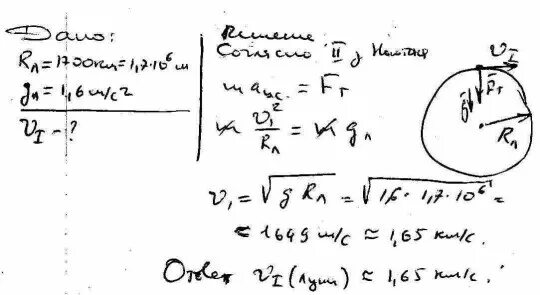 Дано:
Rл = 1700км = 1,7·10⁶ м
gл = 1,6 м/с²
v_I - ?
Решение
Согласно II з Ньютона
m aц.с. = Fт
m v₁²/Rл = m gл
v₁ = √(g Rл) = √(1,6 · 1,7 · 10⁶) =
= 1649 м/с ≈ 1,65 км/с.
Ответ v_I (луны) ≈ 1,65 км/с.
v_I
Fт
Rл